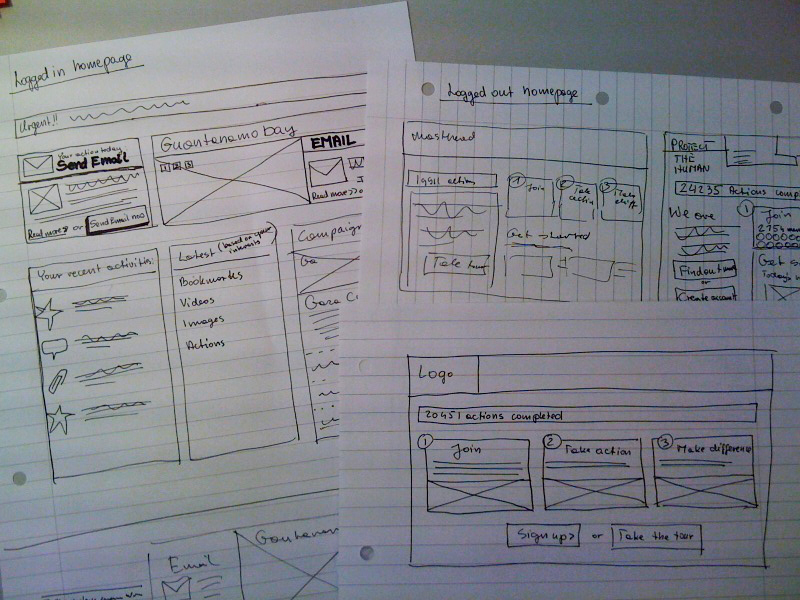 Logged in homepage
Urgent!!
Your action today
Send Email
Read more > or Send Email no
Guantanamo bay
1 2 3
EMAIL
Read more >> o
Your recent activities:
Latest (based on your interests)
Bookmarks
Videos
Images
Actions
Campaign
Ga
Gaza C
Email
Guantanam
Logged out homepage
Masthead
19511 actions
1 Join
2 Take action
3
Get started
Take tour
PROJECT
THE
HUMAN
24235 Actions comp
We are
Find out
or
Create account
1 Join
Get s
Today's
Logo
20451 actions completed
1 Join
2 Take action
3 Make difference
Sign up> or Take the tour